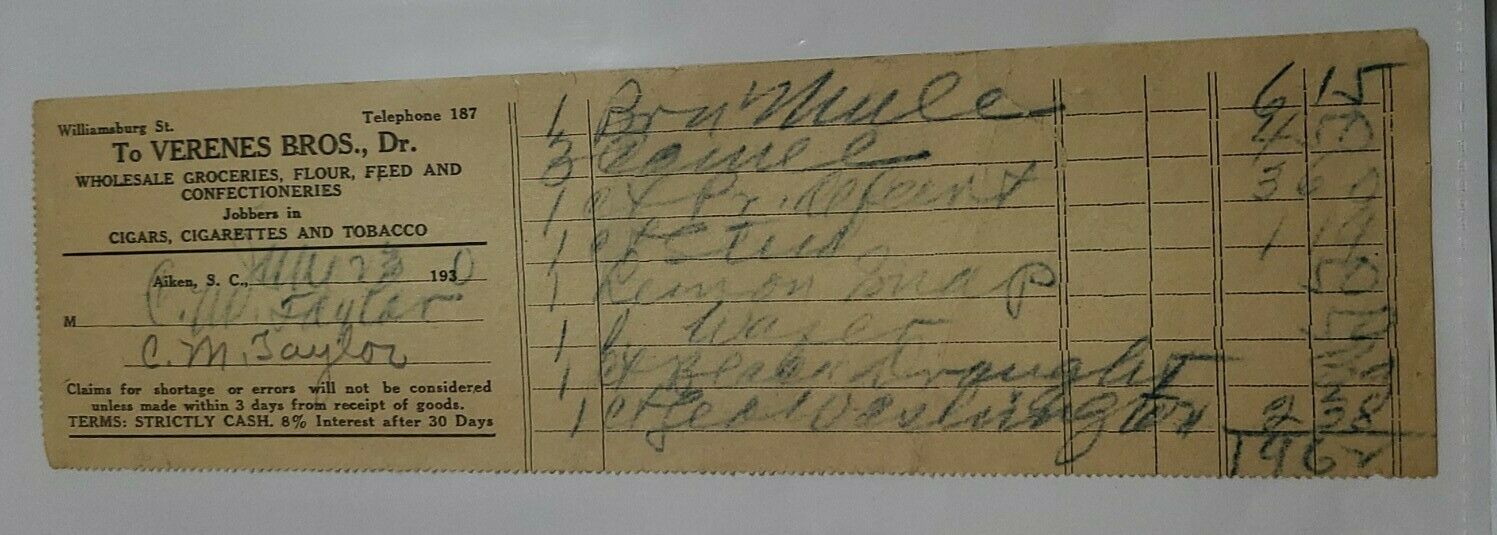 Williamsburg St. Telephone 187
To VERENES BROS., Dr.
WHOLESALE GROCERIES, FLOUR, FEED AND
CONFECTIONERIES
Jobbers in
CIGARS, CIGARETTES AND TOBACCO
Aiken, S. C., 23 1930
M C. M. Taylor
C. M. Taylor
Claims for shortage or errors will not be considered
unless made within 3 days from receipt of goods.
TERMS: STRICTLY CASH. 8% Interest after 30 Days
1 Brn Mule 6 15
3 4 50
1 3 60
1 ct Stud 1 19
1 Lemon Snap 50
1
1
1 ct Geo Washington 2 38
19 62